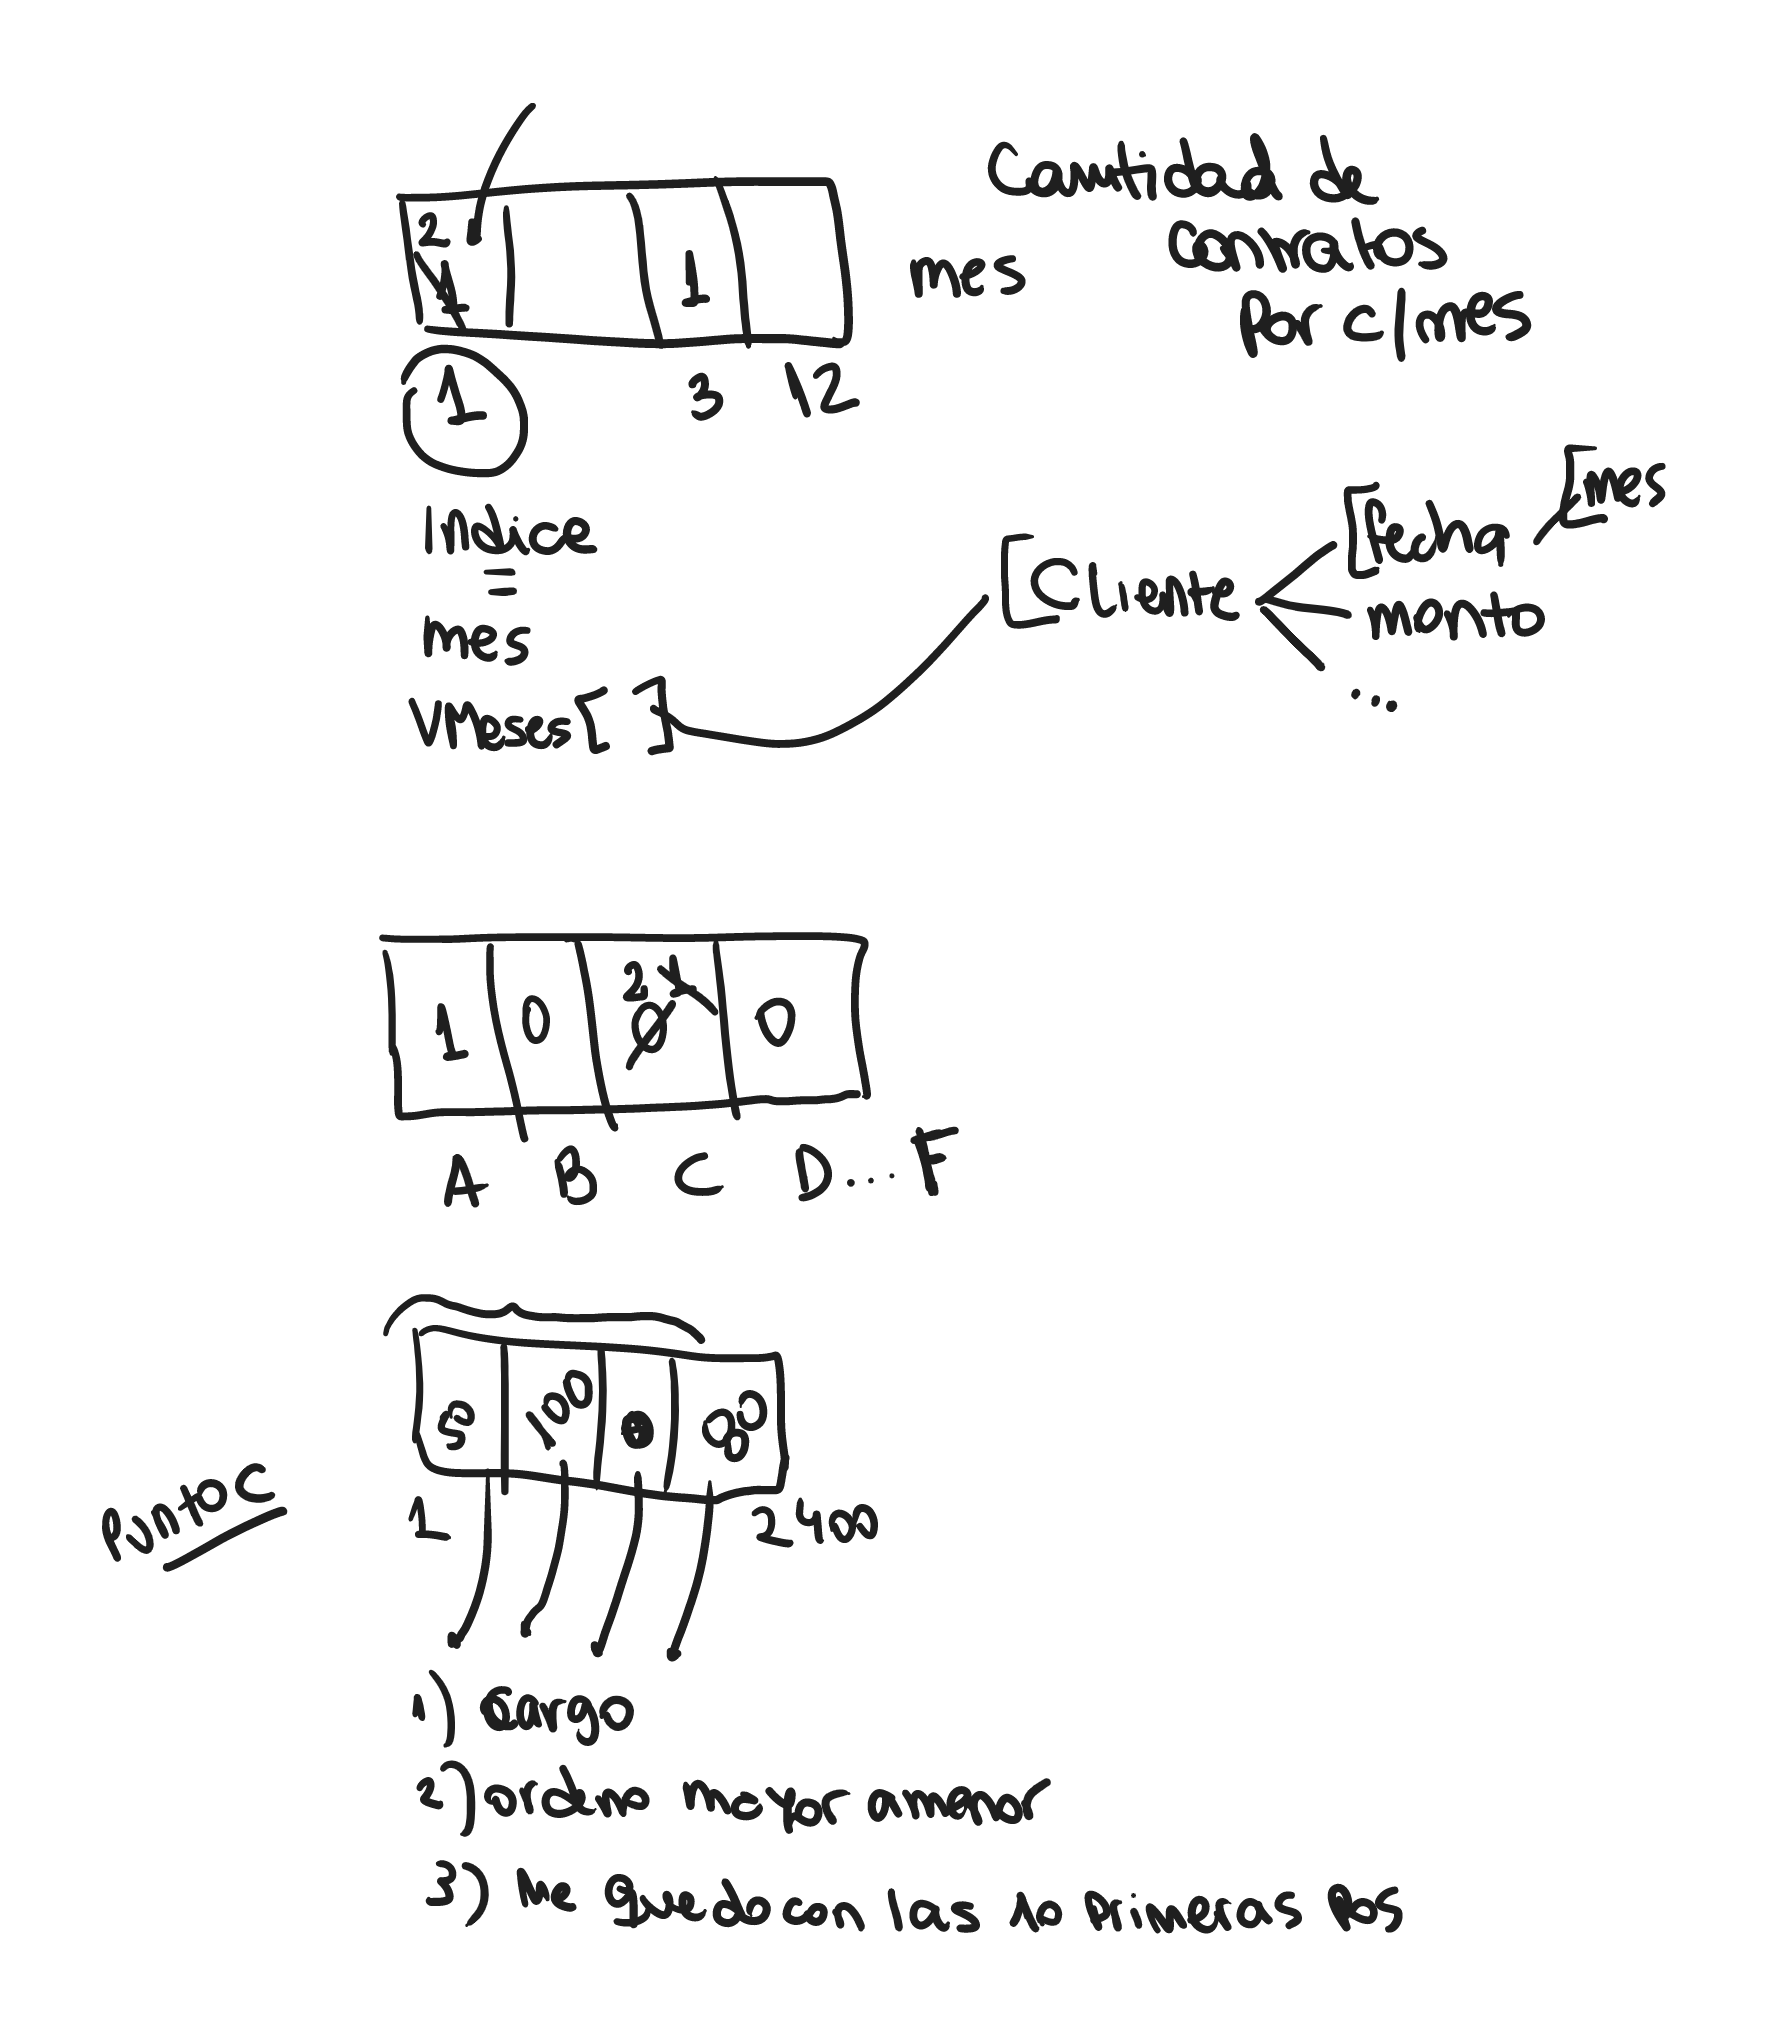 Cantidad de
contratos
por c/mes
2 1 1
mes
1 3 12
Indice
=
mes
VMeses[ ]
[Cliente
[fecha
[mes
monto
...
1 0 2 1 0 0
A B C D... F
50 100 0 80
1 2400
Punto C
1) Cargo
2) ordeno mayor a menor
3) Me quedo con las 10 primeras pos